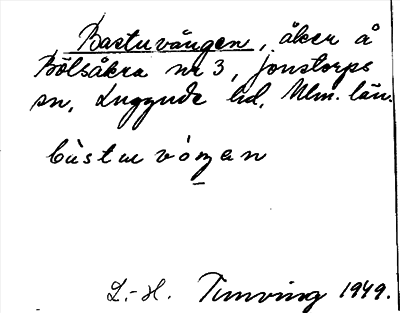 Bastuvången, åker å
Bölsåkra nr 3, Jonstorps
sn, Luggude hd, Mlm. län.
bàstuvòŋan
L.-H. Timving 1949.